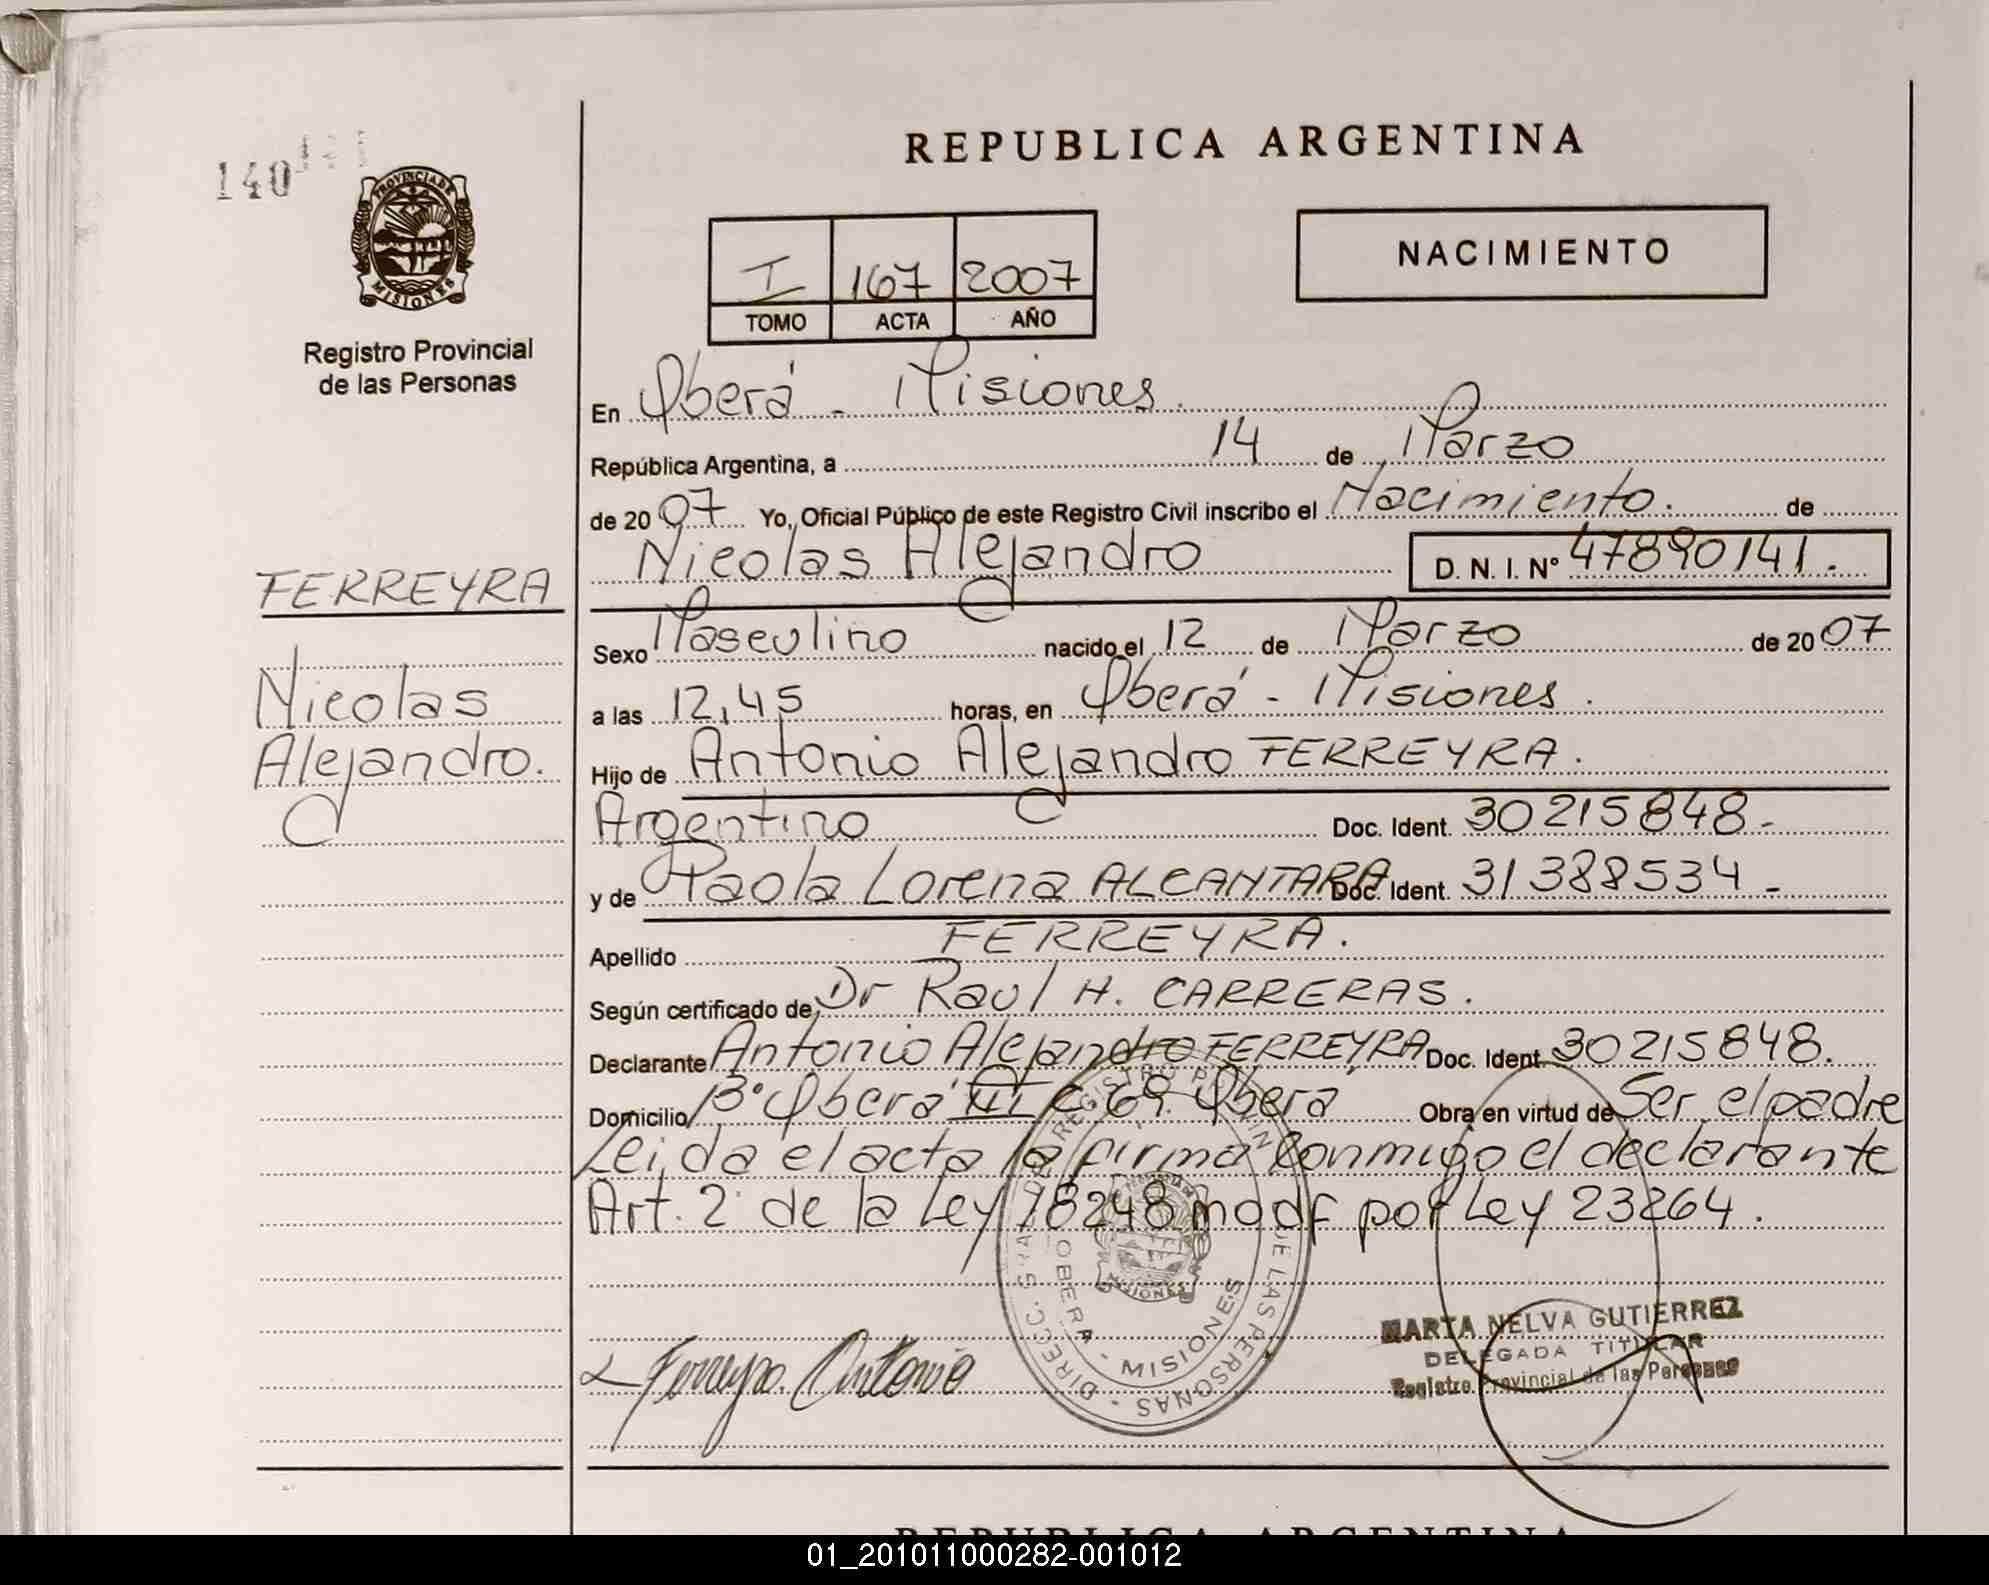 140
PROVINCIA DE
MISIONES
Registro Provincial
de las Personas
FERREYRA
Nicolas
Alejandro.
REPUBLICA ARGENTINA
I 167 2007
TOMO ACTA AÑO
NACIMIENTO
En Oberá - Misiones.
República Argentina, a 14 de Marzo
de 2007 Yo, Oficial Público de este Registro Civil inscribo el Nacimiento. de
Nicolas Alejandro D. N. I. Nº 47890141.
Sexo Masculino nacido el 12 de Marzo de 2007
a las 12,45 horas, en Oberá - Misiones.
Hijo de Antonio Alejandro FERREYRA.
Argentino Doc. Ident. 30215848-
y de Paola Lorena ALCANTARA Doc. Ident. 31388534-
Apellido FERREYRA.
Según certificado de Dr Raul H. CARRERAS.
Declarante Antonio Alejandro FERREYRA Doc. Ident. 30215848.
Domicilio Bº Oberá III C 69. Oberá Obra en virtud de Ser el padre
Leida el acta la firma conmigo el declarante
Art. 2 de la Ley 18248 modf por Ley 23264.
Ferreyra Antonio
OBERA - MISIONES
MARTA NELVA GUTIERREZ
DELEGADA TITULAR
Registro Provincial de las Personas
REPUBLICA ARGENTINA
01_201011000282-001012